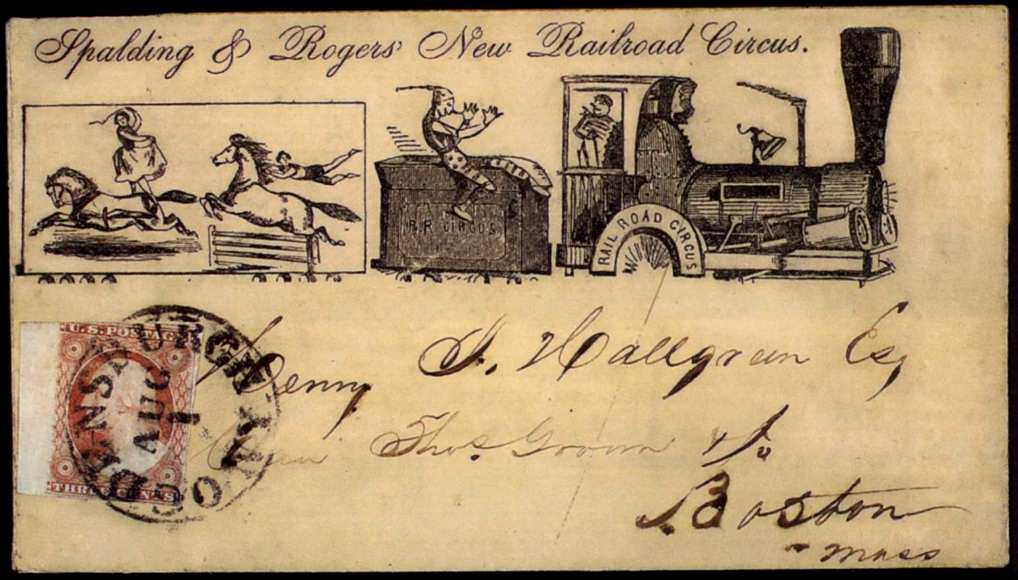 Spalding & Rogers' New Railroad Circus.
R.R. CIRCUS
RAIL ROAD CIRCUS
U.S. POSTAGE
THREE CENTS
OGDENSBURGH N.Y.
AUG
1
Henry J. Hallgreen Esq
Care Thos Groom & Co
Boston
Mass